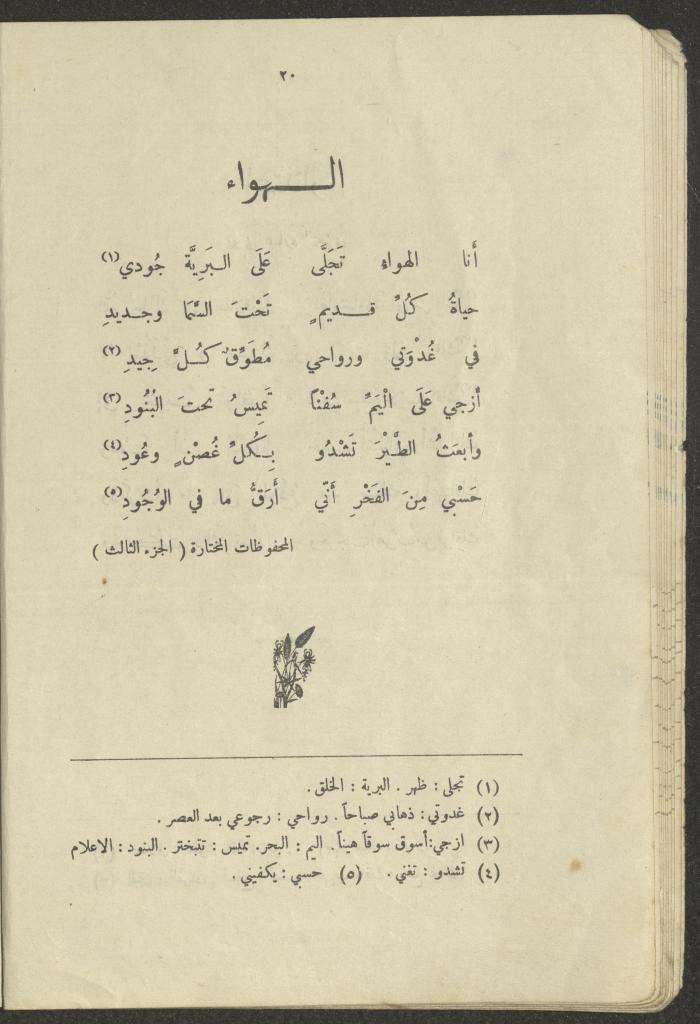 ٢٠
الهواء
أَنا الهواءُ تَجَلَّى عَلَى البَرِيَّة جُودي (١)
حياةُ كُلِّ قديمٍ تَحْتَ السَّمَا وجديدِ
في غُدْوَتي ورواحي مُطَوِّقٌ كُلَّ جِيدِ (٢)
أزجي عَلَى الْيَمِّ سُفْنًا تَمِيسُ تحتَ البُنُودِ (٣)
وأبعَثُ الطَّيْرَ تَشْدُو بِكُلِّ غُصْنٍ وعُودِ (٤)
حَسْبي مِنَ الفَخْرِ أَنّي أَرَقُّ ما في الوُجُودِ (٥)
المحفوظات المختارة ( الجزء الثالث )
(١) تجلى : ظهر . البرية : الخلق .
(٢) غدوتي : ذهابي صباحاً . رواحي : رجوعي بعد العصر .
(٣) ازجي : أسوق سوقاً هيناً . اليم : البحر . تميس : تتبختر . البنود : الاعلام
(٤) تشدو : تغني . (٥) حسبي : يكفيني .